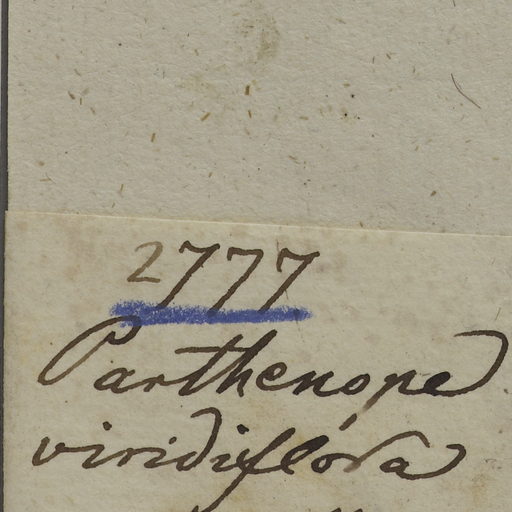 2777
Parthenope
viridiflóra